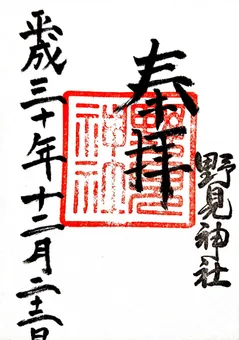 奉拝
野見神社
野見神社
平成三十年十二月二十三日